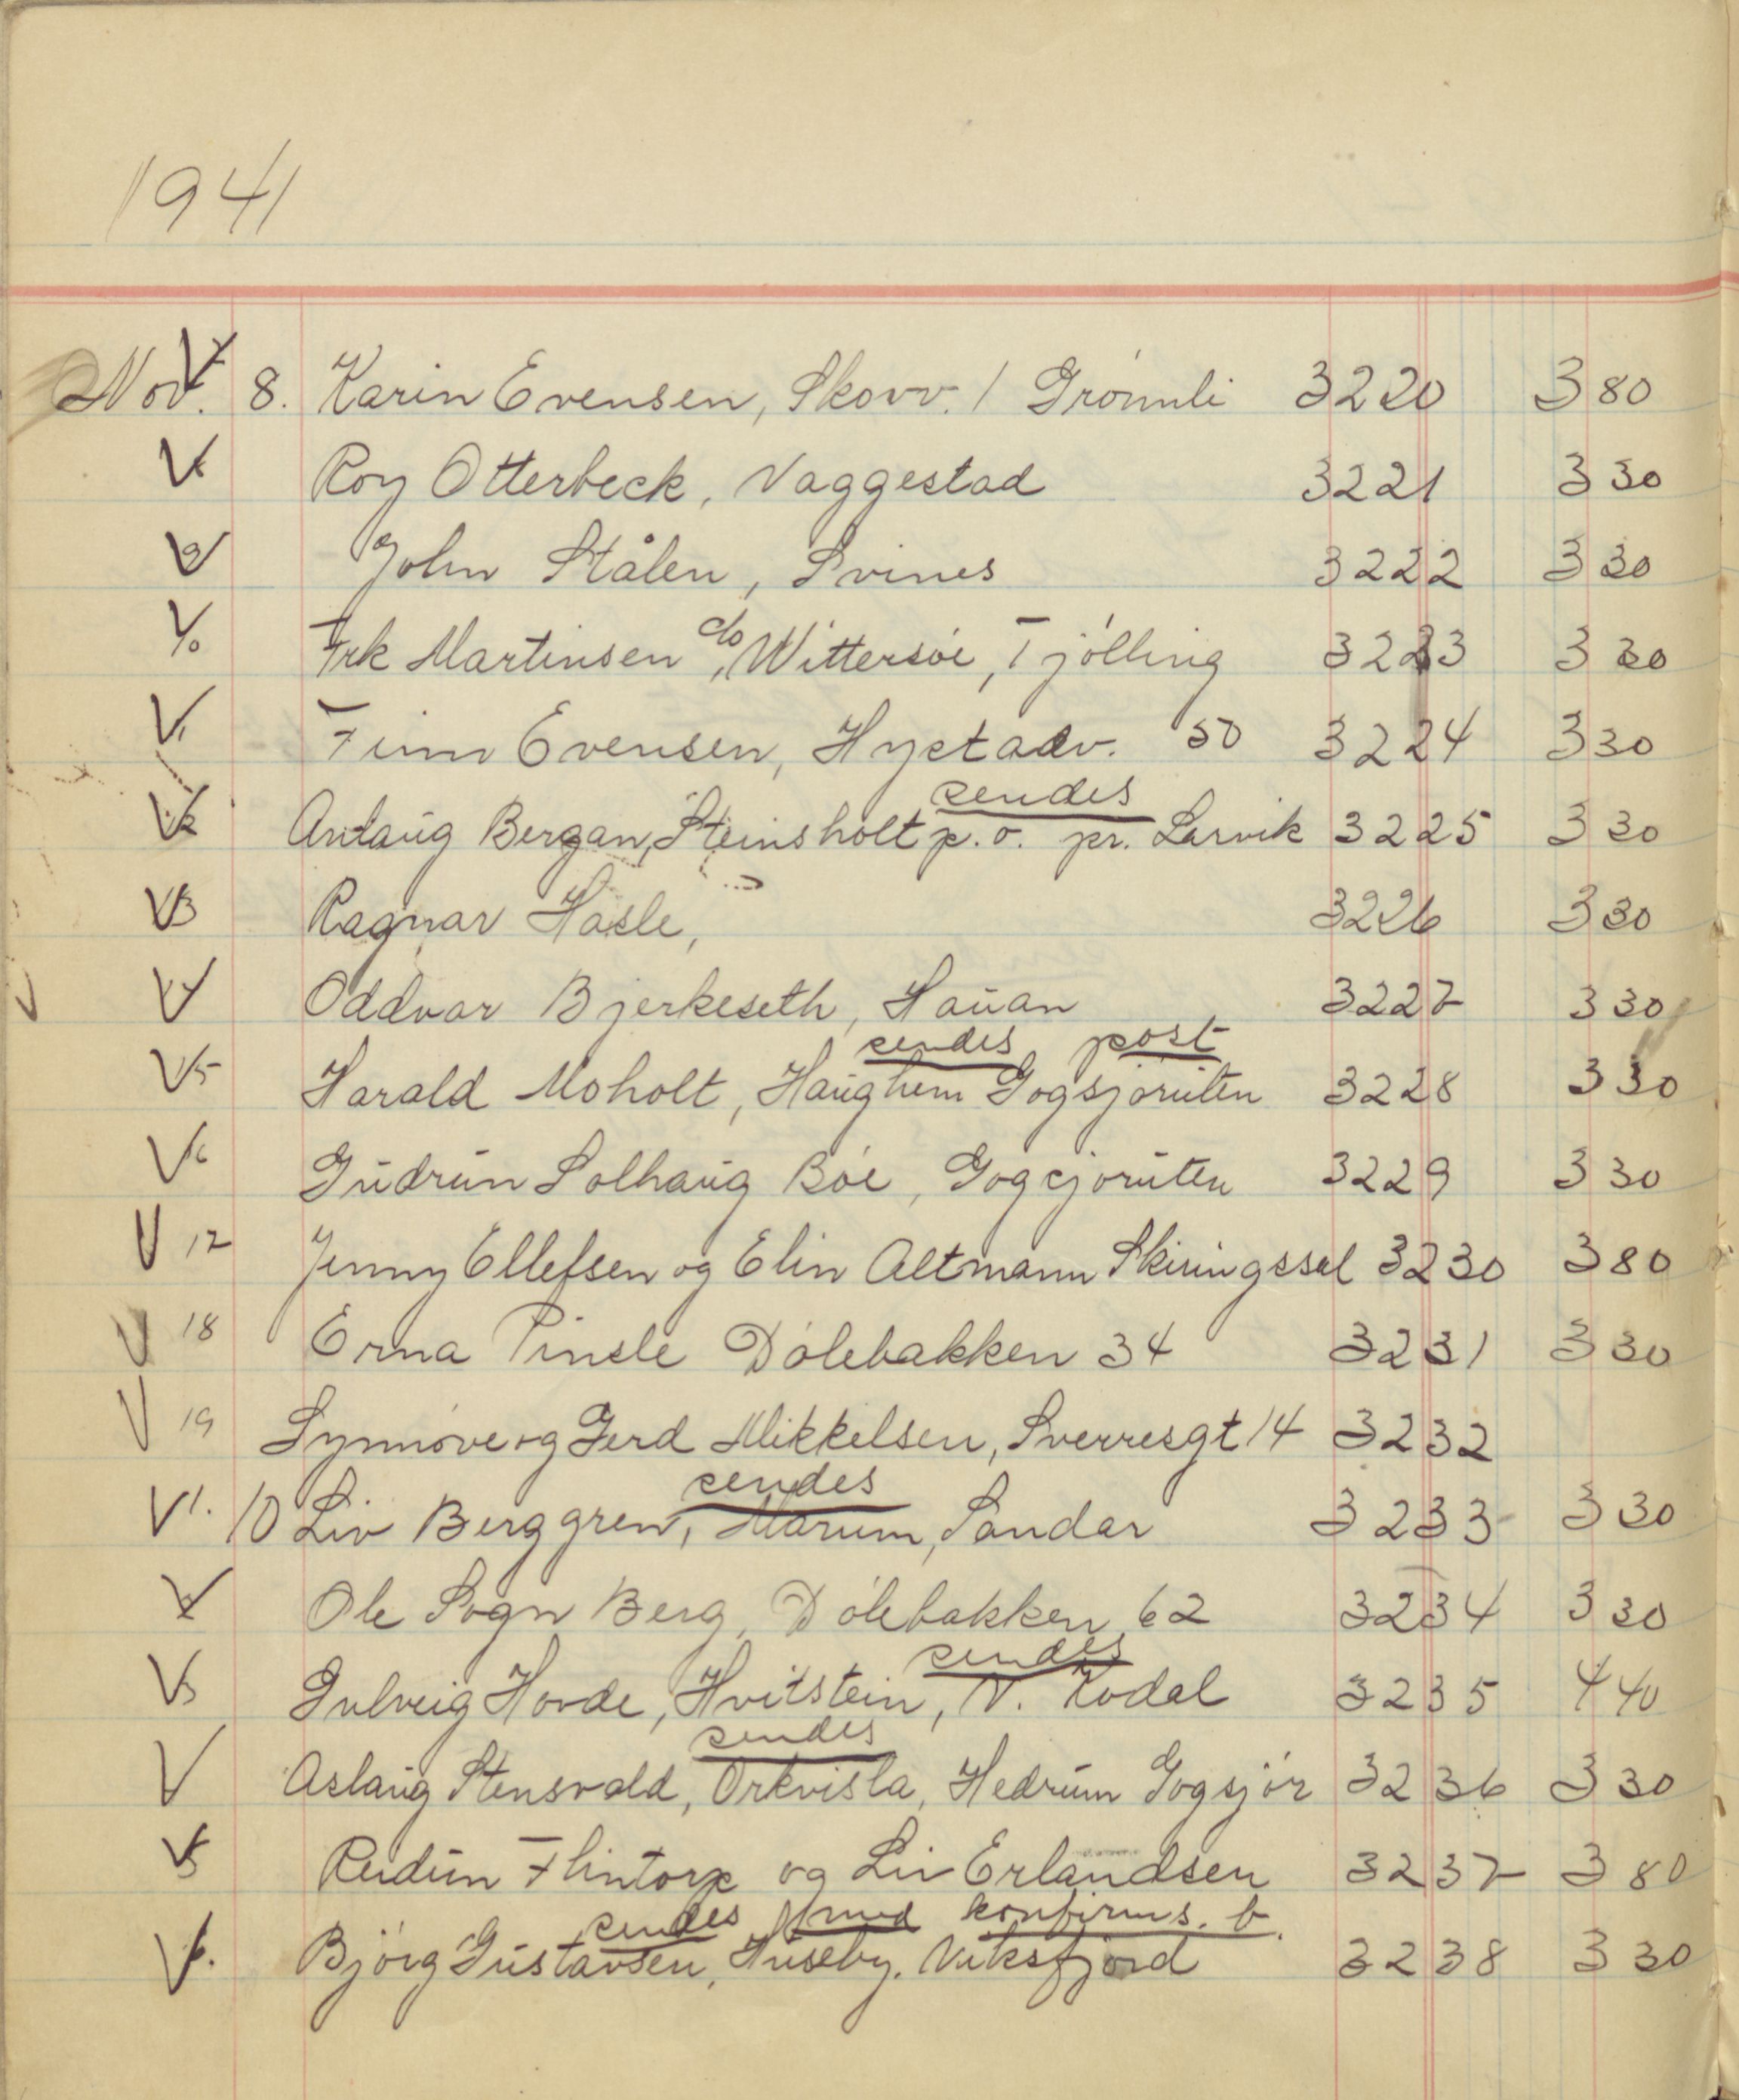 1941
Nov. 8. Karin Evensen, Skovv. 1 Grømli 3220 3 80
Roy Otterbeck, Vaggestad 3221 3 30
John Stålen, Svines 3222 3 30
Frk Martinsen, c/o Wittersøe, Tjølling 3223 3 30
Finn Evensen, Hystadv. 50 3224 3 30
sendes
Anlaug Bergan, Steinsholt p.o. pr. Larvik 3225 3 30
Ragnar Hasle, 3226 3 30
Oddvar Bjerkeseth, Hauan 3227 3 30
sendes post
Harald Moholt, Haughem Gogsjøruten 3228 3 30
Gudrun Solhaug Bøe, Gogsjøruten 3229 3 30
17 Jenny Ellefsen og Elin Altmann Skiringssal 3230 3 80
18 Erna Pinsle Dølebakken 34 3231 3 30
19 Synnøve og Gerd Mikkelsen, Sverresgt 14 3232
sendes
1. 10 Liv Berggren, Marum, Sandar 3233 3 30
Ole Sogn Berg, Dølebakken 62 3234 3 30
sendes
3 Solveig Hovde, Hvitstein, N. Kodal 3235 4 40
sendes
Aslaug Stensvold, Orkvisla, Hedrum Gogsjør 3236 3 30
5 Reidun Flintorp og Liv Erlandsen 3237 3 80
sendes med konfirms. b.
Bjørg Gustavsen, Huseby, Viksfjord 3238 3 30